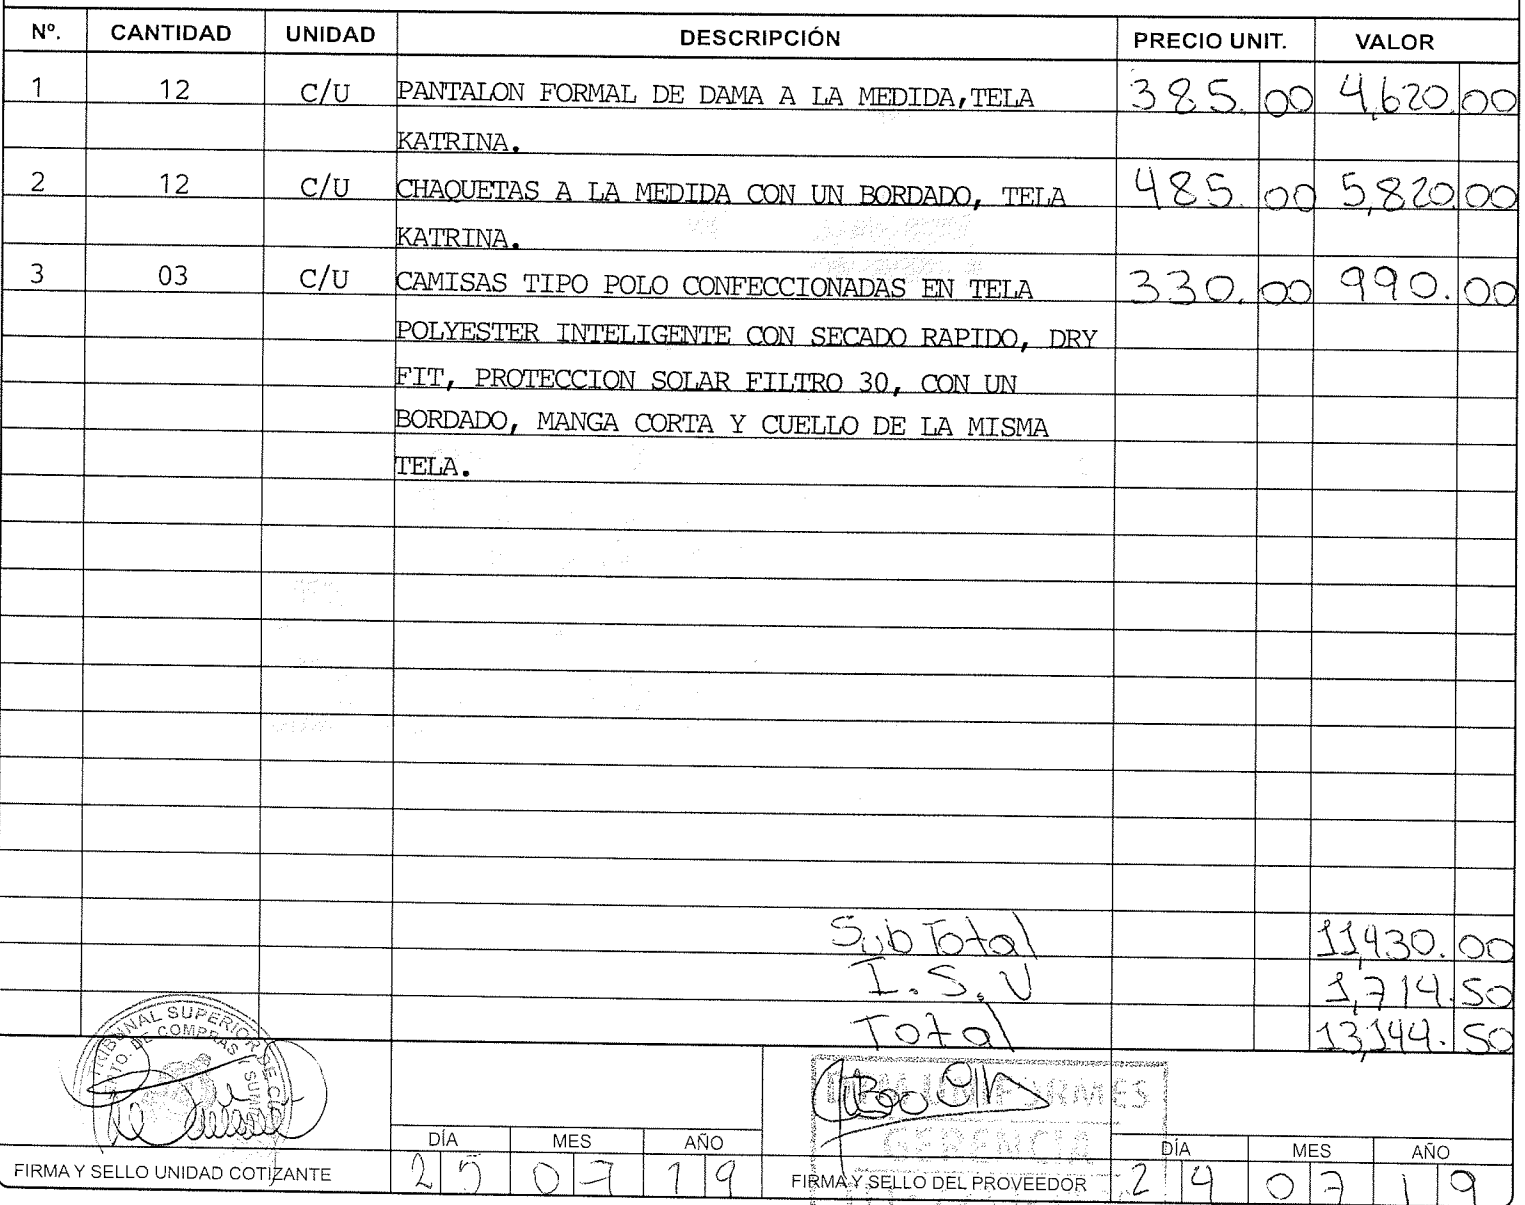 Nº. CANTIDAD UNIDAD DESCRIPCIÓN PRECIO UNIT. VALOR
1 12 C/U PANTALON FORMAL DE DAMA A LA MEDIDA,TELA 385.00 4,620.00
KATRINA.
2 12 C/U CHAQUETAS A LA MEDIDA CON UN BORDADO, TELA 485.00 5,820.00
KATRINA.
3 03 C/U CAMISAS TIPO POLO CONFECCIONADAS EN TELA 330.00 990.00
POLYESTER INTELIGENTE CON SECADO RAPIDO, DRY
FIT, PROTECCION SOLAR FILTRO 30, CON UN
BORDADO, MANGA CORTA Y CUELLO DE LA MISMA
TELA.
Sub Total 11,430.00
I.S.V 1,714.50
Total 13,144.50
TRIBUNAL SUPERIOR DE
DE COMPRAS
GERENCIA
DÍA MES AÑO DÍA MES AÑO
FIRMA Y SELLO UNIDAD COTIZANTE 25 07 19 FIRMA Y SELLO DEL PROVEEDOR 24 07 19